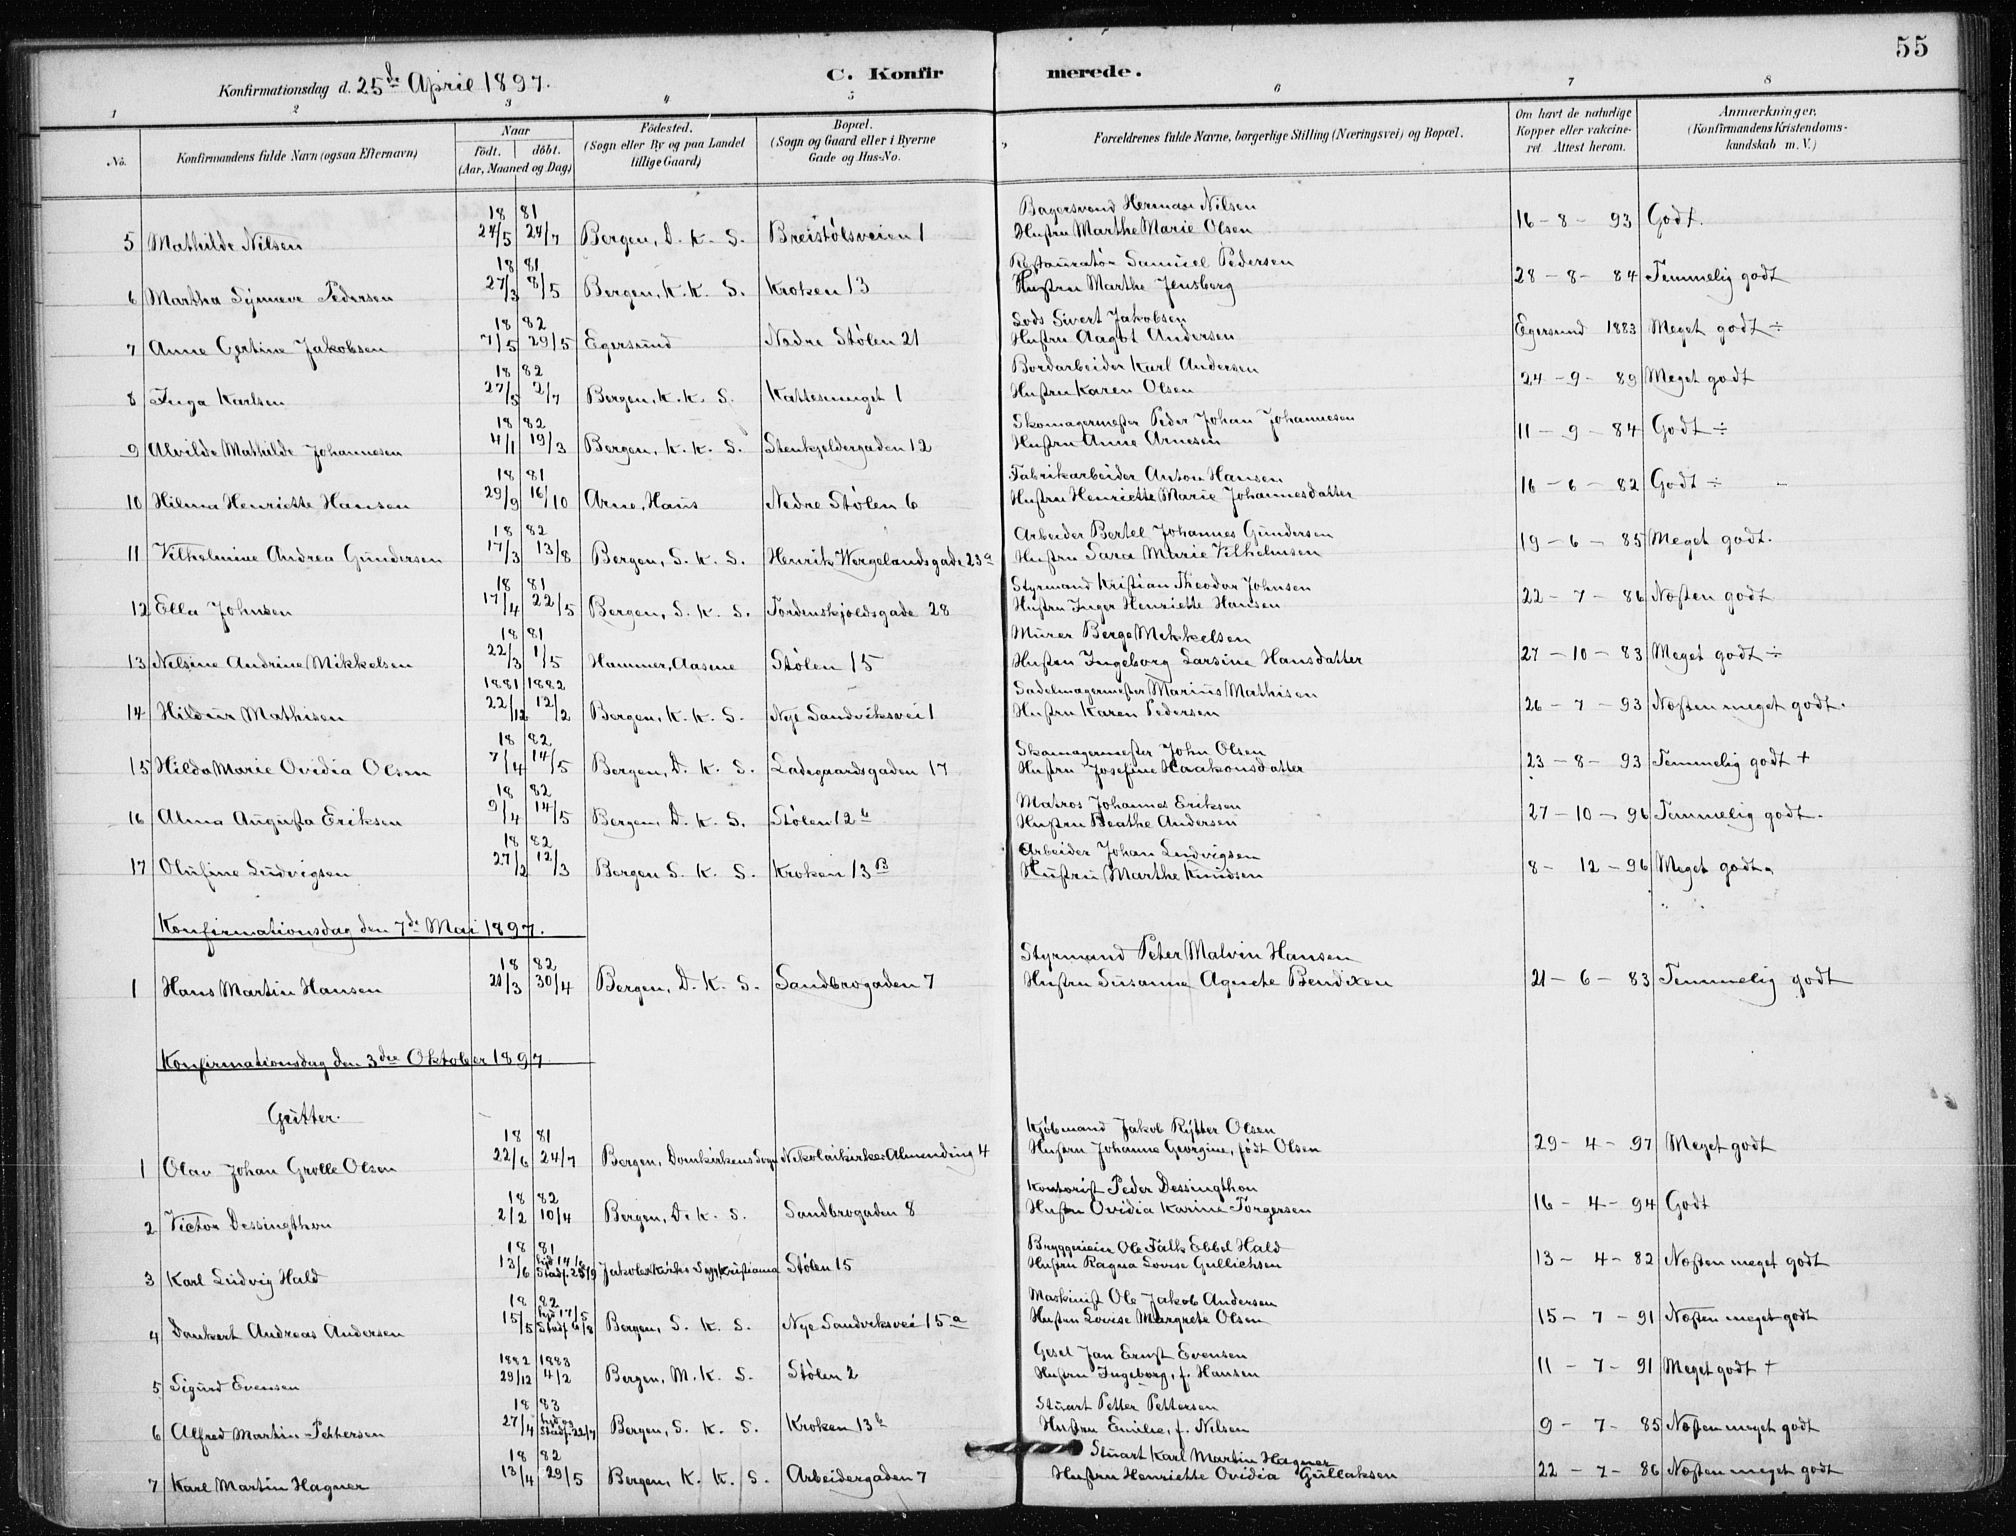 55
Konfirmationsdag d. 25de April 1897. C. Konfirmerede.
1 2 3 4 5 6 7 8
No. Konfirmandens fulde Navn (ogsaa Efternavn) Naar födt. döbt. (Aar, Maaned og Dag) Födested. (Sogn eller By og paa Landet tillige Gaard) Bopæl. (Sogn og Gaard eller i Byerne Gade og Hus-No. Forældrenes fulde Navne, borgerlige Stilling (Næringsvei) og Bopæl. Om havt de naturlige Kopper eller vakcineret Attest herom. Anmærkninger. (Konfirmandens Kristendomskundskab m. V.)
18 81 Bagersvend Herman Nilsen
5 Mathilde Nilsen 24/5 24/7 Bergen, D. K. S. Breistølsveien 1 Hustru Marthe Marie Olsen 16 - 8 - 93 Godt.
18 81 Restauratør Samuel Pedersen
6 Martha Synneve Pedersen 27/3 8/5 Bergen, K. K. S. Kroken 13 Hustru Marthe Jensberg 28 - 8 - 84 Temmelig godt
18 82 Lods Sivert Jakobsen
7 Anne Gertine Jakobsen 7/5 29/5 Egersund Nedre Stølen 21 Hustru Aagot Andersen Egersund 1883 Meget godt ÷
18 82 Bordarbeider Karl Andersen
8 Inga Karlsen 27/5 2/7 Bergen, K. K. S. Kattesmuget 1 Hustru Karen Olsen 24 - 9 - 89 Meget godt
18 82 Skomagermester Peder Johan Johannesen
9 Alvilde Mathilde Johannesen 4/1 19/3 Bergen, K. K. S. Stenkjeldergaden 12 Hustru Anne Arnesen 11 - 9 - 84 Godt ÷
18 81 Fabrikarbeider Anton Hansen
10 Hilma Henriette Hansen 29/9 16/10 Arne, Haus Nedre Stølen 6 Hustru Henriette Marie Johannesdatter 16 - 6 - 82 Godt ÷
18 82 Arbeider Bertel Johannes Gundersen
11 Vilhelmine Andrea Gundersen 17/3 13/8 Bergen, S. K. S. Henrik Wergelandsgade 23a Hustru Sara Marie Vilhelmsen 19 - 6 - 85 Meget godt.
18 81 Styrmand Kristian Theodor Johnsen
12 Ella Johnsen 17/4 22/5 Bergen, S. K. S. Tordenskjoldsgade 28 Hustru Inger Henriette Hansen 22 - 7 - 86 Næsten godt
18 81 Murer Berge Mikkelsen
13 Nilsine Andrine Mikkelsen 22/3 1/5 Hammer, Aasene Stølen 15 Hustru Ingeborg Larsine Hansdatter 27 - 10 - 83 Meget godt ÷
1881 1882 Sadelmagermester Marius Mathisen
14 Hildur Mathisen 22/12 12/2 Bergen, K. K. S. Nye Sandviksvei 1 Hustru Karen Pedersen 26 - 7 - 93 Næsten meget godt.
18 82 Skomagermester John Olsen
15 Hilda Marie Ovidia Olsen 7/4 14/5 Bergen, D. K. S. Ladegaardsgaden 17 Hustru Josefine Haakonsdatter 23 - 8 - 93 Temmelig godt +
18 82 Matros Johannes Eriksen
16 Alma Augusta Eriksen 9/4 14/5 Bergen, D. K. S. Stølen 12b Hustru Beathe Andersen 27 - 10 - 96 Temmelig godt.
18 82 Arbeider Johan Ludvigsen
17 Olufine Ludvigsen 27/2 12/3 Bergen S. K. S. Kroken 13B Hustru Marthe Knudsen 8 - 12 - 96 Meget godt.
Konfirmationsdag den 7de Mai 1897.
18 82 Styrmand Peter Malvin Hansen
1 Hans Martin Hansen 28/3 30/4 Bergen, D. K. S. Sandbrogaden 7 Hustru Susanna Agnete Bendixen 21 - 6 - 83 Temmelig godt
Konfirmationsdag den 3die Oktober 1897
Gutter.
18 81 Kjøbmand Jakob Rytter Olsen
1 Olav Johan Grolle Olsen 22/6 24/7 Bergen, Domkirkens Sogn Nikolaikirke Almending 4 Hustru Johanne Georgine, født Olsen 29 - 4 - 97 Meget godt
18 82 Kontorist Peder Dessingthon
2 Victor Dessingthon 2/2 10/4 Bergen, D. K. S. Sandbrogaden 8 Hustru Ovidia Karine Torgersen 16 - 4 - 94 Godt
18 81 Bryggerieier Ole Falk Ebbel Hald
3 Karl Ludvig Hald 13/6 hjd 14/6 Stadf. 25/9 Jakobs Kirkes Sogn Kristiania Stølen 15 Hustru Ragna Lovise Gullichsen 13 - 4 - 82 Næsten meget godt
18 82 Maskinist Ole Jakob Andersen
4 Dankert Andreas Andersen 15/5 hjd 17/5 Stadf. 6/8 Bergen, S. K. S. Nye Sandviksvei 15a Hustru Lovise Margrete Olsen 15 - 7 - 91 Næsten meget godt
1882 1883 Gesel Jan Ernst Evensen
5 Sigurd Evensen 29/12 4/2 Bergen, M. K. S. Stølen 2 Hustru Ingeborg, f. Hansen 11 - 7 - 91 Meget godt +
18 83 Stuart Petter Pettersen
6 Alfred Martin Pettersen 27/4 Stadf. 22/7 Bergen, S. K. S. Kroken 13b Hustru Emilie, f. Nilsen 9 - 7 - 85 Næsten meget godt
18 82 Stuart Karl Martin Hagner
7 Karl Martin Hagner 13/4 29/5 Bergen, K. K. S. Arbeidergaden 7 Hustru Henriette Ovidia Gullaksen 22 - 7 - 86 Næsten meget godt